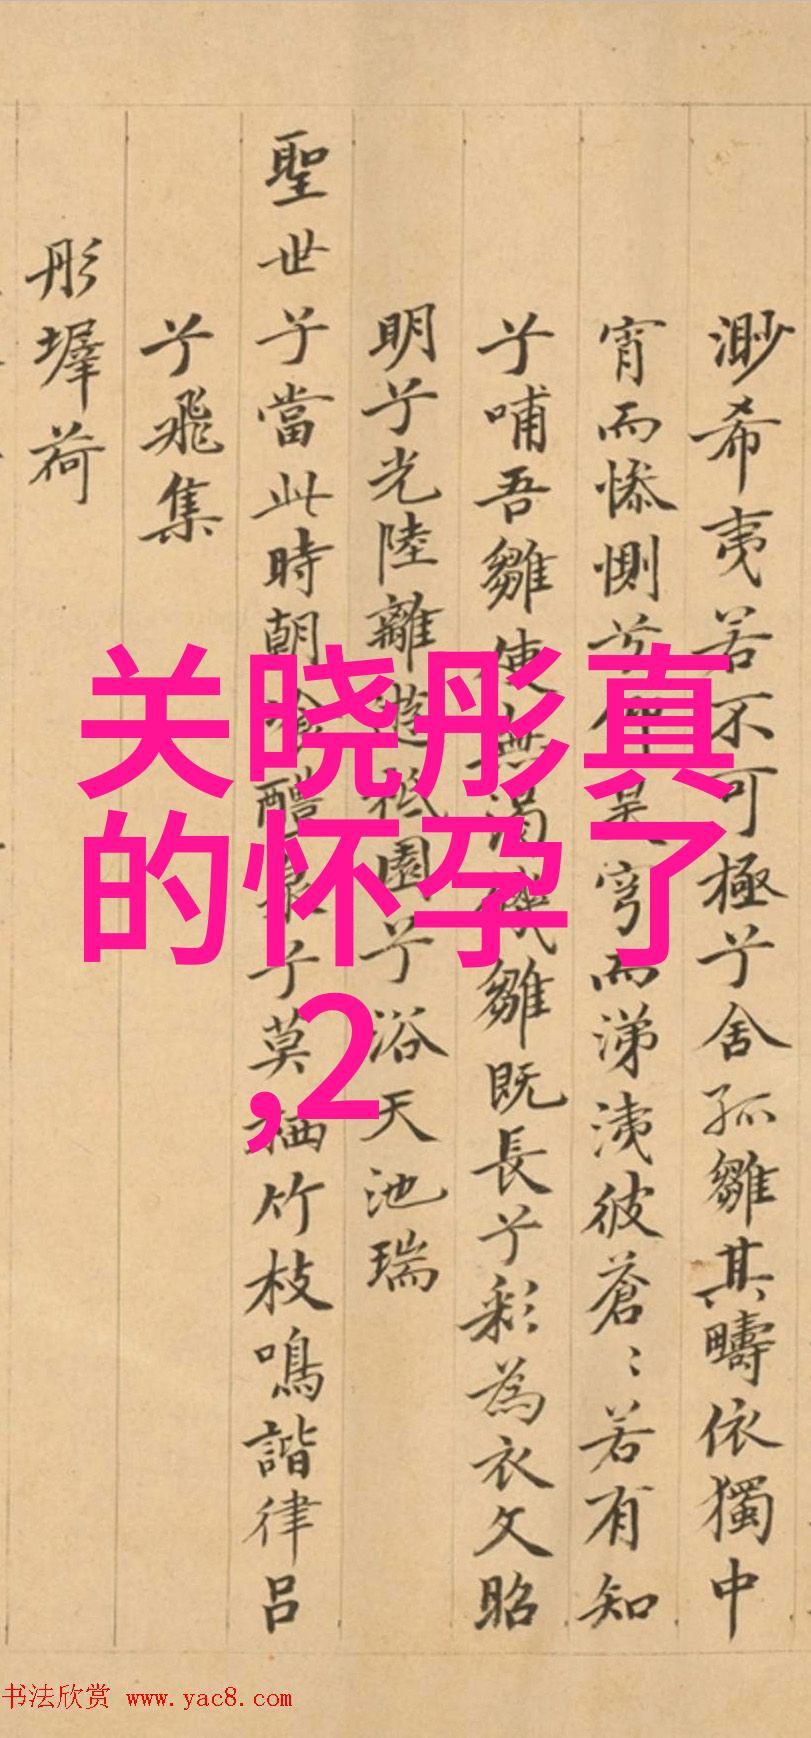 渺希夷若不可極兮舍孤雛其疇依獨中
宵而悽惻兮仰昊穹而涕洟彼蒼〻若有知
兮哺吾雛使無渴饑雛既長兮彩為衣文昭
明兮光陸離遊祗園兮浴天池瑞
聖世兮當此時朝飲醴泉兮莫栖竹枝鳴諧律呂
兮飛集
彤墀荷
关晓彤真
的怀孕了
,2
书法欣赏 www.yac8.com